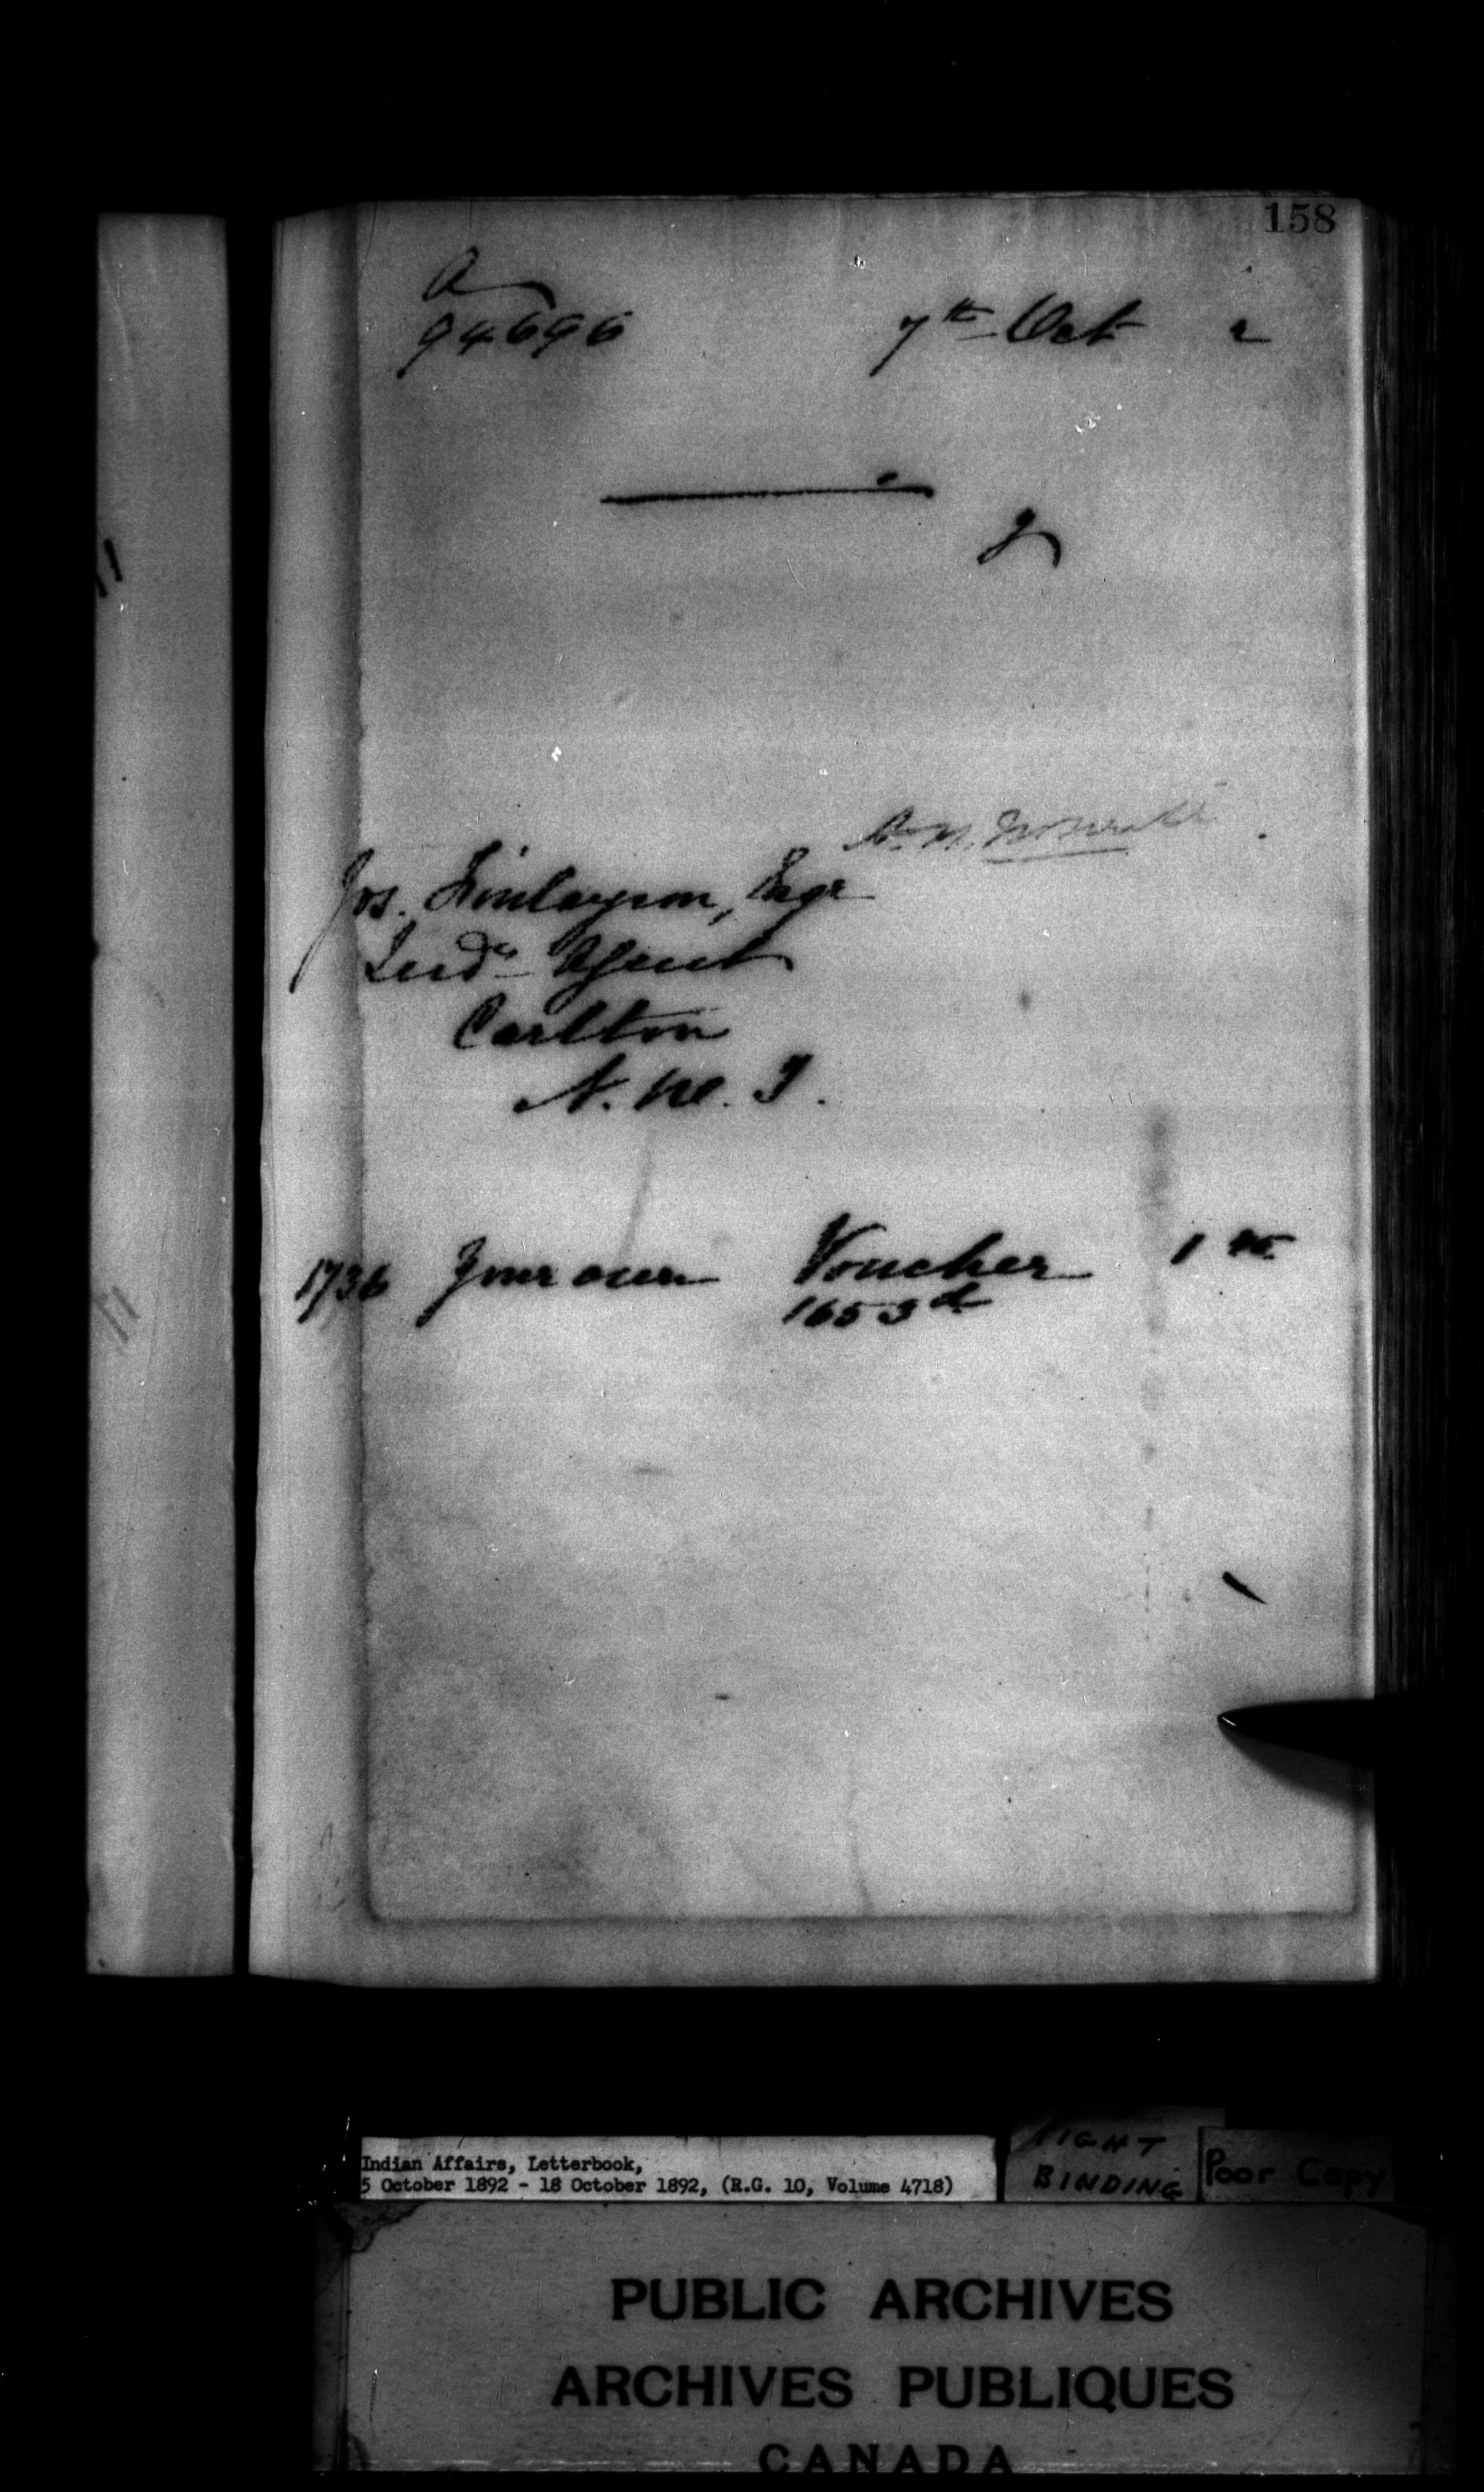 158
A
94696 7th Oct 2
Jos. Finlayson, Esqr
Ind'n Agent
Carlton
N. W. T.
1736 Your own Voucher 1 00
1653d
Indian Affairs, Letterbook,
5 October 1892 - 18 October 1892, (R.G. 10, Volume 4718)
TIGHT
BINDING
Poor Copy
PUBLIC ARCHIVES
ARCHIVES PUBLIQUES
CANADA